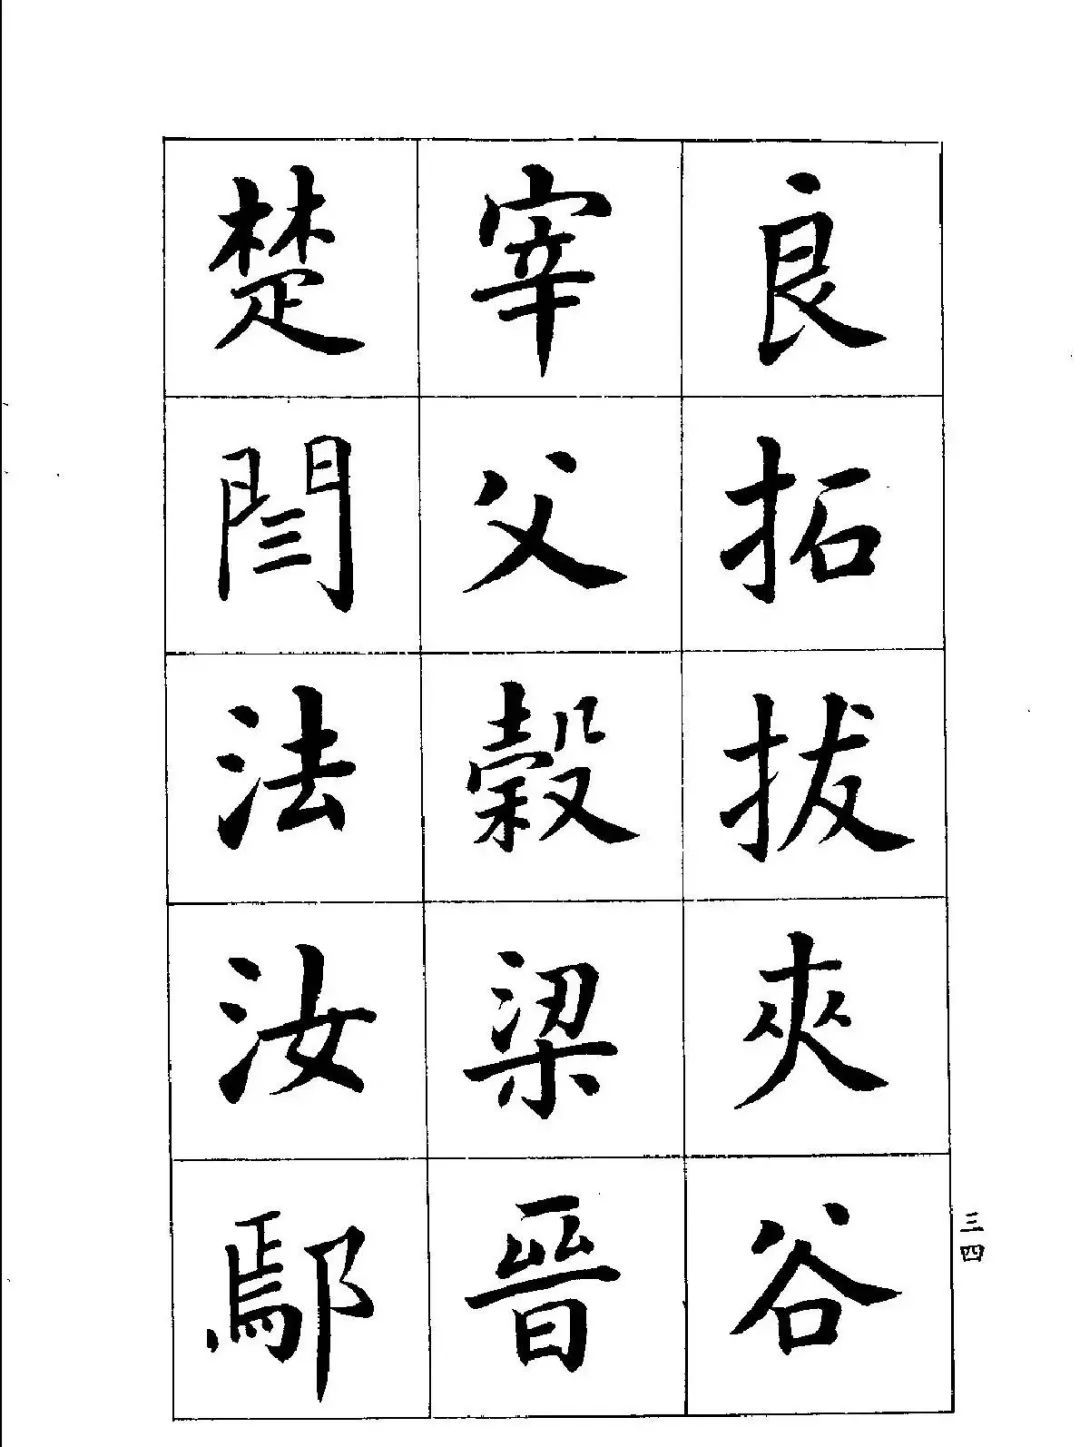 良拓拔夾谷
宰父穀梁晉
楚閆法汝鄢
三四